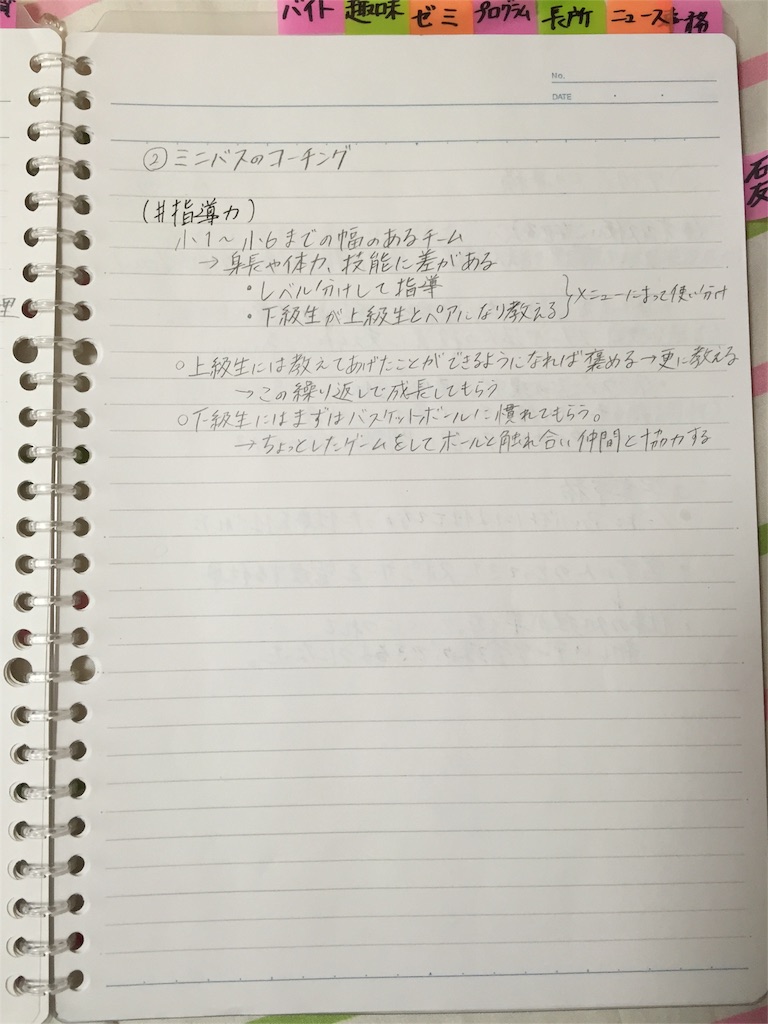 バイト 趣味 ゼミ プログラム 長所 ニュース 務
No.
DATE
② ミニバスのコーチング
(#指導力)
小1〜小6までの幅のあるチーム
→ 身長や体力、技能に差がある
・レベル分けして指導
・下級生が上級生とペアになり教える } メニューによって使い分け
○上級生には教えてあげたことができるようになれば褒める→更に教える
→この繰り返しで成長してもらう
○下級生にはまずはバスケットボールに慣れてもらう。
→ちょっとしたゲームをしてボールと触れ合い仲間と協力する